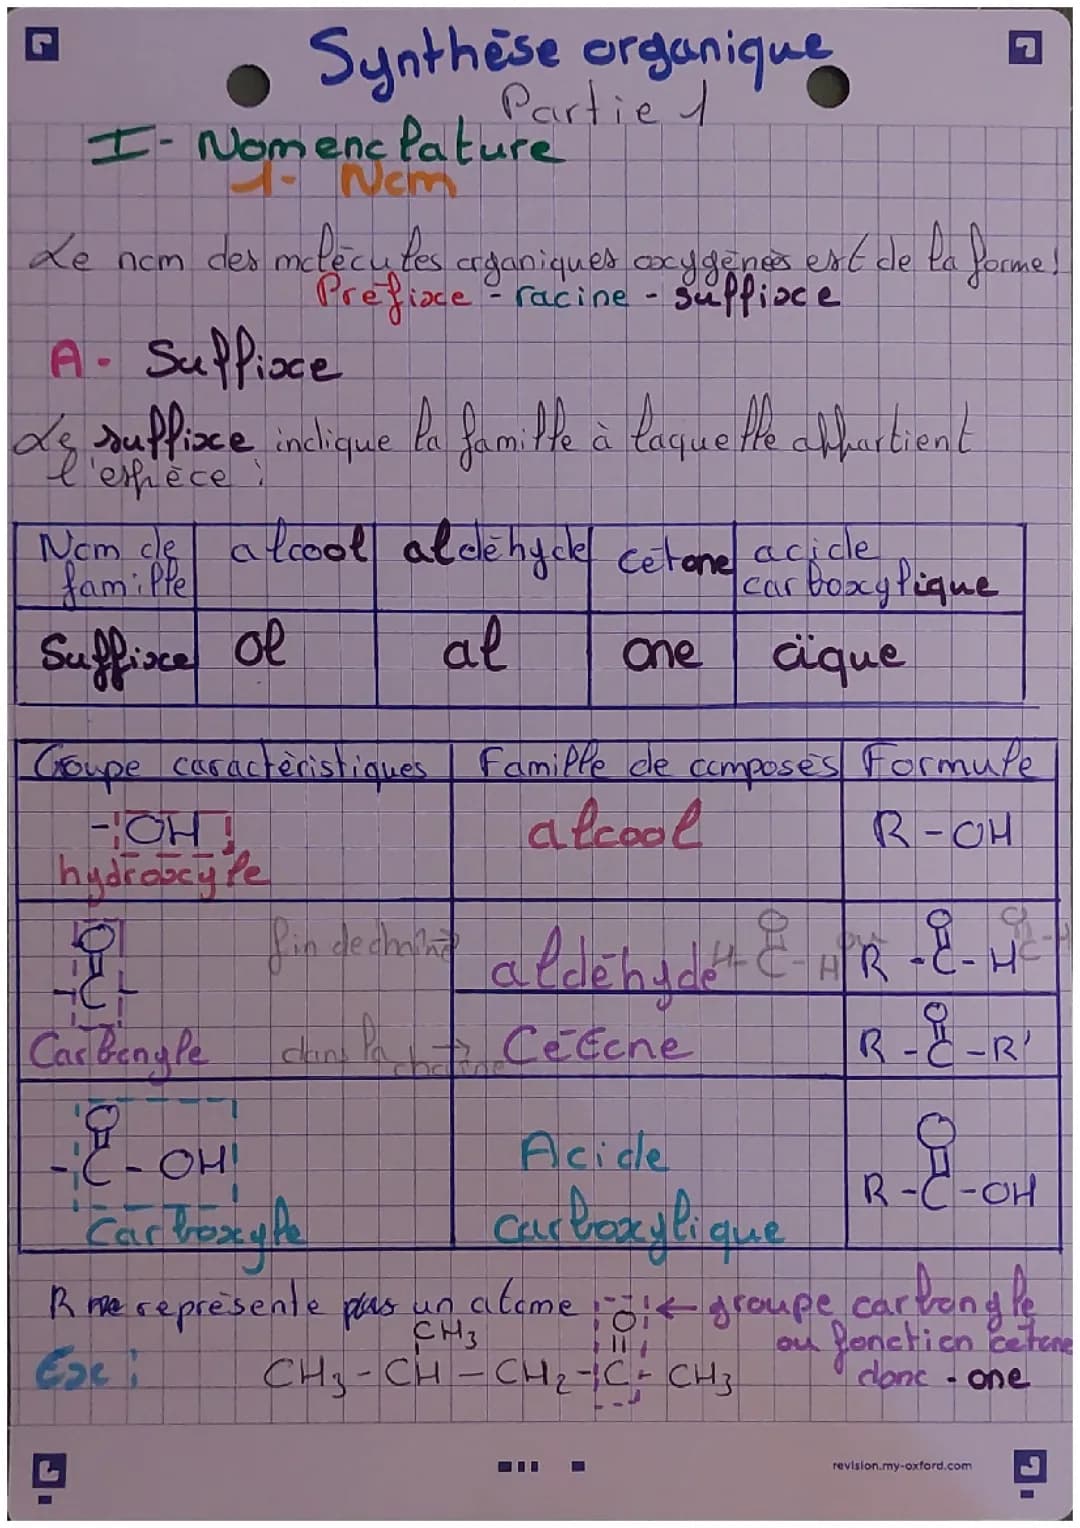 Synthèse organique
Partie 1
I- Nomenclature
1- Nom
Le nom des molécules organiques oxygénées est de la forme:
Préfixe - racine - suffixe
A- Suffixe
Le suffixe indique la famille à laquelle appartient
l'espèce :
Nom de famille alcool aldéhyde cétone acide carboxylique
Suffixe ol al one oïque
Groupe caractéristiques Famille de composés Formule
-OH alcool R-OH
hydroxyle
O fin de chaîne O O O
-C- aldéhyde H-C-H ou R-C-H C-H
Carbonyle dans la chaîne → Cétone R-C-R'
O O
-C-OH Acide R-C-OH
Carboxyle carboxylique
R ne représente pas un atome O ← groupe carbonyle
CH3 ou fonction cétone
Ex: CH3-CH-CH2-C-CH3 donc -one
revision.my-oxford.com